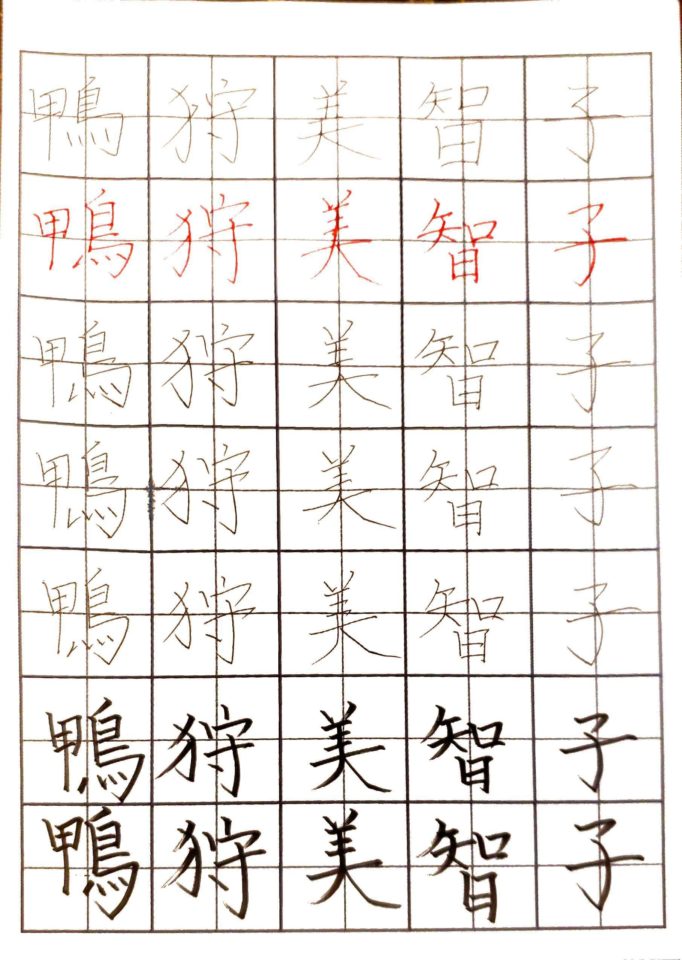 鴨狩美智子
鴨狩美智子
鴨狩美智子
鴨狩美智子
鴨狩美智子
鴨狩美智子
鴨狩美智子